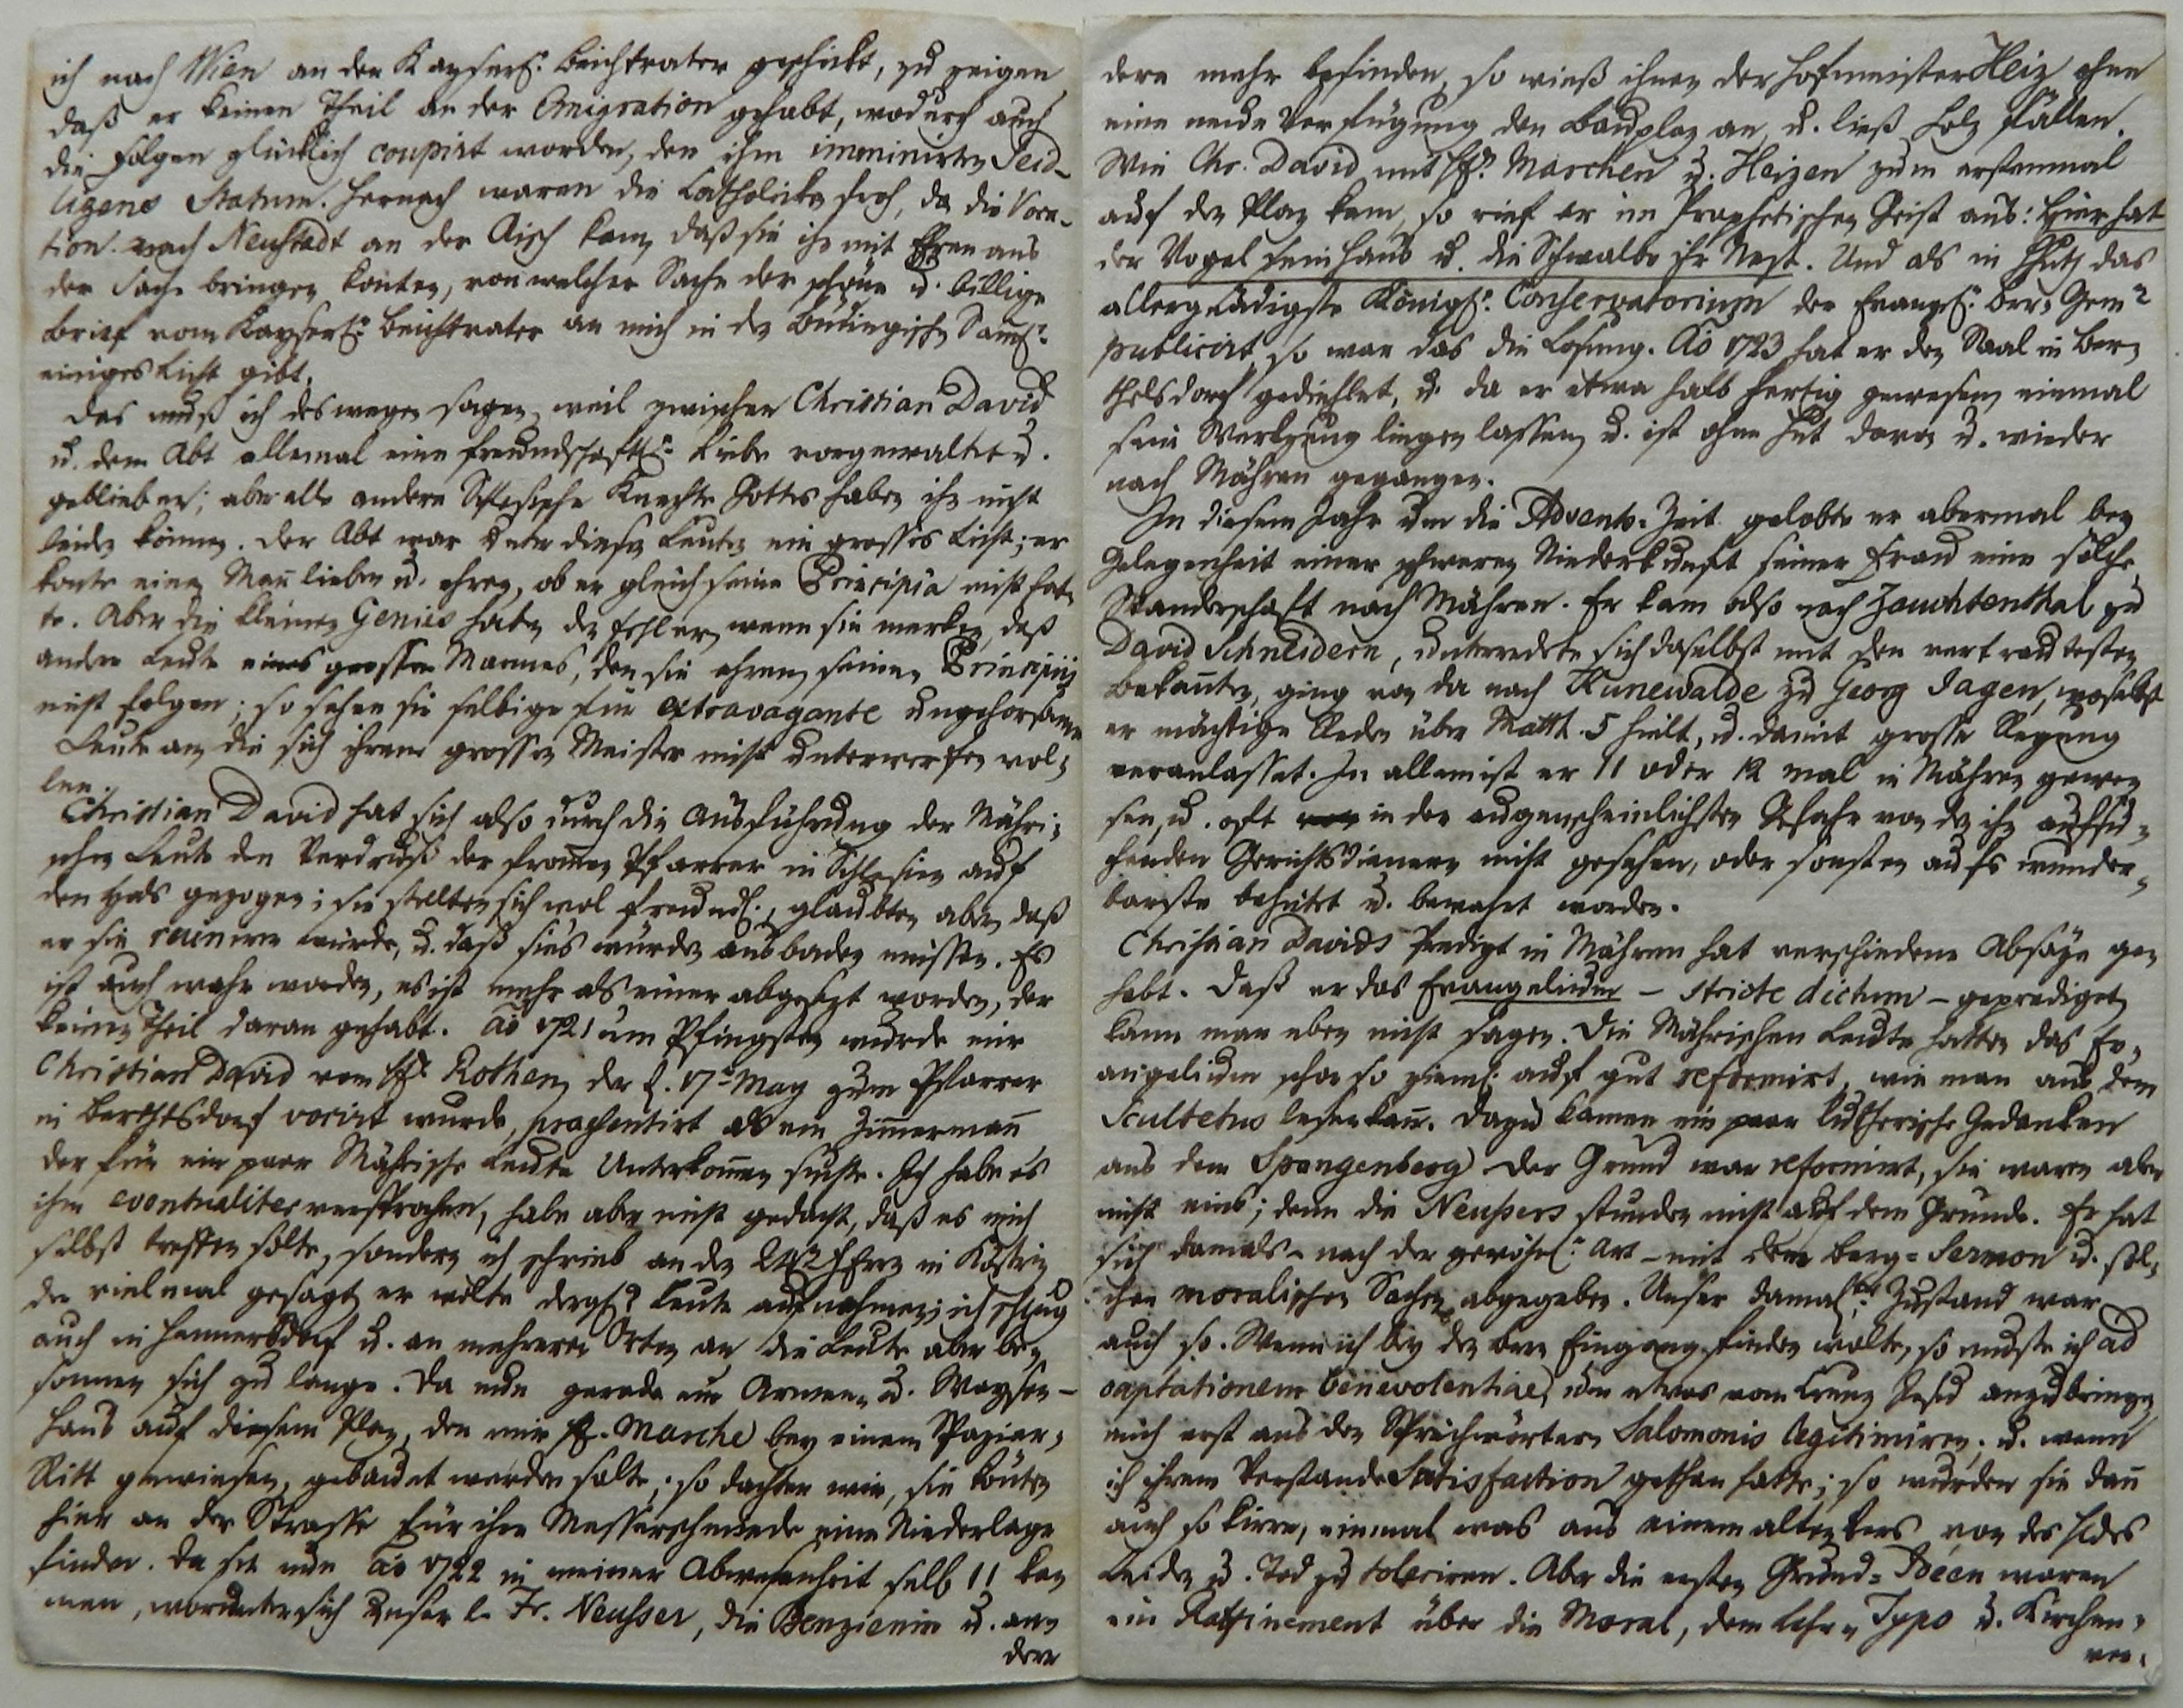 ich nach Wien an den Kayserl. Beichtvater geschickt, zu zeigen
daß er keinen Theil an der Emigration gehabt, wodurch auch
die Folgen glücklich coupirt worden, den ihm imminirten Seid-
lizens Statum. Hernach waren die Catholicken froh, da die Voca-
tion nach Neustadt an der Aisch kam, daß sie ihn mit Ehren aus
der Sache bringen konten, von welcher Sache der schöne u. billige
Brief vom Kayserl. Beichtvater an mich in der Büdingischen Saml.
einiges Licht gibt.
Das muß ich deswegen sagen, weil zwischen Christian David
u. dem Abt allemal eine freundschaftl. Liebe vorgewaltet u.
geblieben; aber alle andere Schlesische Knechte Gottes haben ihn nicht
leiden können. Der Abt war unter diesen Leuten ein grosses Licht; er
konte einen Mañ lieben u. ehren, ob er gleich seine Principia nicht hat-
te. Aber die kleinen Genies haben den Fehler, wenn sie merken, daß
andere Leute eines grossen Mannes, den sie ehren, seinen Principiis
nicht folgen; so sehen sie selbige für extravagante ungehorsame
Leute an, die sich ihrem grossen Meister nicht unterwerfen wol-
len.
Christian David hat sich also durch die Ausführung der Mähri-
schen Leute den Verdruß der fromen Pfarrer in Schlesien auf
den Hals gezogen; sie stellten sich wol freundl., glaubten aber, daß
er sie ruiniren würde, u. daß sies würden ausbaden müssen. Es
ist auch wahr worden, es ist mehr als einer abgesezt worden, der
keinen Theil daran gehabt. Ao 1721 um Pfingsten wurde mir
Christian David vom Hr. Rothen, der d. 17 May zum Pfarrer
in Berthelsdorf vocirt wurde, praesentirt als ein Zimmermañ
der für ein paar Mährische Leute Unterkomen suchte. Ich habe es
ihm eventualiter versprochen, habe aber nicht gedacht, daß es mich
selbst treffen solte, sondern ich schrieb an den Herrn in Köstriz
der vielmal gesagt, er wolte dergl. Leute aufnehmen; ich schlug
auch in Hennersdorf u. an mehreren Orten an, die Leute aber be-
sonnen sich zu lange. Da nun gerade ein Armen- u. Waysen-
haus auf diesem Plaz, den mir Hr. Marche bey einem Spazier-
Ritt gewiesen, gebauet werden solte; so dachten wir, sie könten
hier an der Strasse für ihre Messerschmiede eine Niederlage
finden. Da sie nun Ao 1722 in meiner Abwesenheit selb 11 ka-
men, worunter sich unser l. Fr. Neusser, die Benzienin u. an-
dere
dere mehr befinden, so wieß ihnen der Hofmeister Heiz ohne
eine neue Verfügung den Bauplaz an, u. ließ Holz fällen.
Wie Chr. David mit Hr. Marchen u. Heizen zum erstenmal
auf den Plaz kam, so rief er im Prophetischen Geist aus: Hier hat
der Vogel sein Haus u. die Schwalbe ihr Nest. Und als in Hhuth das
allergnädigste Königl. Conservatorium der Evangl. Brr: Gem.
publicirt, so war das die Losung. Ao 1723 hat er den Saal in Ber-
thelsdorf gediehlet, u. da er etwa halb fertig gewesen, einmal
sein Werkzeug liegen lassen, u. ist ohne Hut davon u. wieder
nach Mähren gegangen.
In diesem Jahr um die Advents-Zeit gelobte er abermal bey
Gelegenheit einer schweren Niederkunft seiner Frau eine solche
Wanderschaft nach Mähren. Er kam also nach Zauchtenthal zu
David Schneidern, unterredete sich daselbst mit den vertrautesten
Bekañten, ging von da nach Kunewalde zu Georg Jägen, woselbst
er mächtige Reden über Matth. 5 hielt, u. damit grosse Regung
veranlasset. In allem ist er 11 oder 12 mal in Mähren gewe-
sen, u. oft in der augenscheinlichsten Gefahr von den ihn aufsu-
chenden Gerichtsdienern nicht gesehen, oder sonsten aufs wunder-
barste behütet u. bewahrt worden.
Christian Davids Predigt in Mähren hat verschiedene Absäze ge-
habt. Daß er das Evangelium – stricte dictum – geprediget,
kann man eben nicht sagen. Die Mährischen Leute hatten das Ev-
angelium schon so zieml. auf gut reformirt, wie man aus dem
Scultetus lesen kañ. Dazu kamen ein paar lutherische Gedanken
aus dem Spangenberg. Der Grund war reformirt, sie waren aber
nicht eins; denn die Neussers stunden nicht auf dem Grunde. Er hat
sich damals – nach der gewöhnl. Art – mit dem Berg-Sermon u. sol-
chen moralischen Sachen abgegeben. Unser damal. Zustand war
auch so. Wenn ich bey den Brn Eingang finden wolte, so muste ich ad
captationem benevolentiae, um etwas vom Creuz Jesu anzubringen
mich erst aus den Sprichwörtern Salomonis legitimiren. u. wenn
ich ihrem Verstande Satisfaction gethan hatte; so wurden sie dañ
auch so kirre, einmal was aus einem alten Vers von des Hldes
Leiden u. Tod zu toleriren. Aber die ersten Grund-Ideen waren
ein Raffinement über die Moral, dem Lehr- Typo u. Kirchen-
ver-